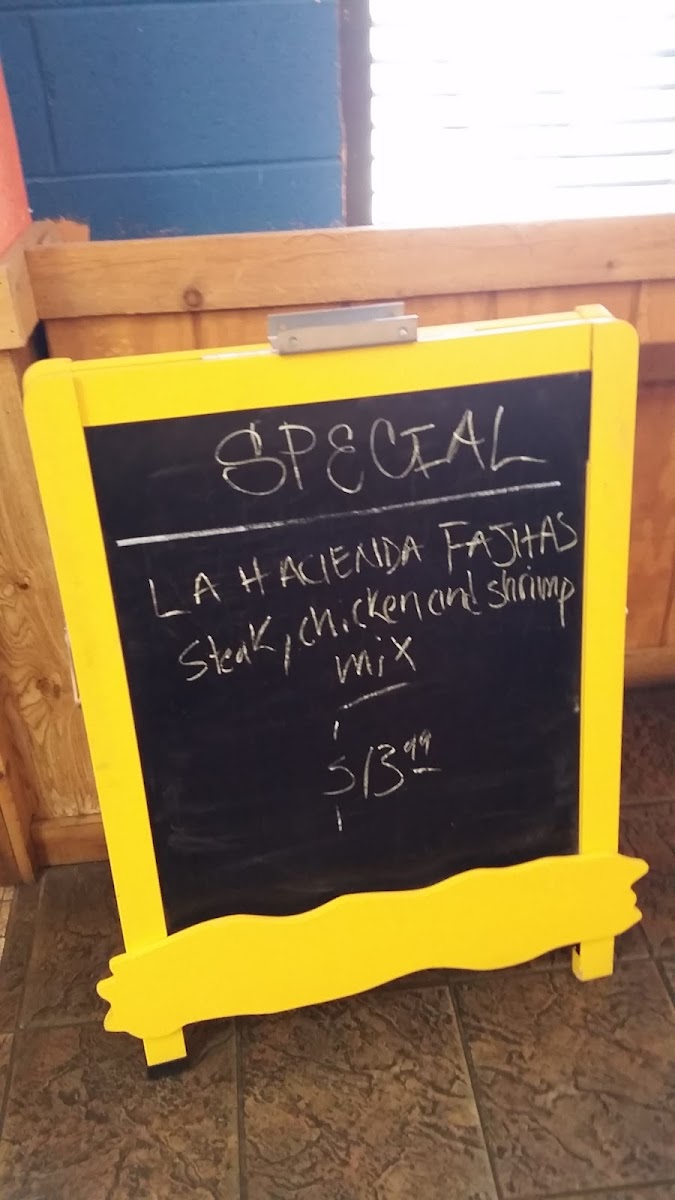 SPECIAL
LA HACIENDA FAJITAS
steak, chicken and shrimp
mix
$13.99